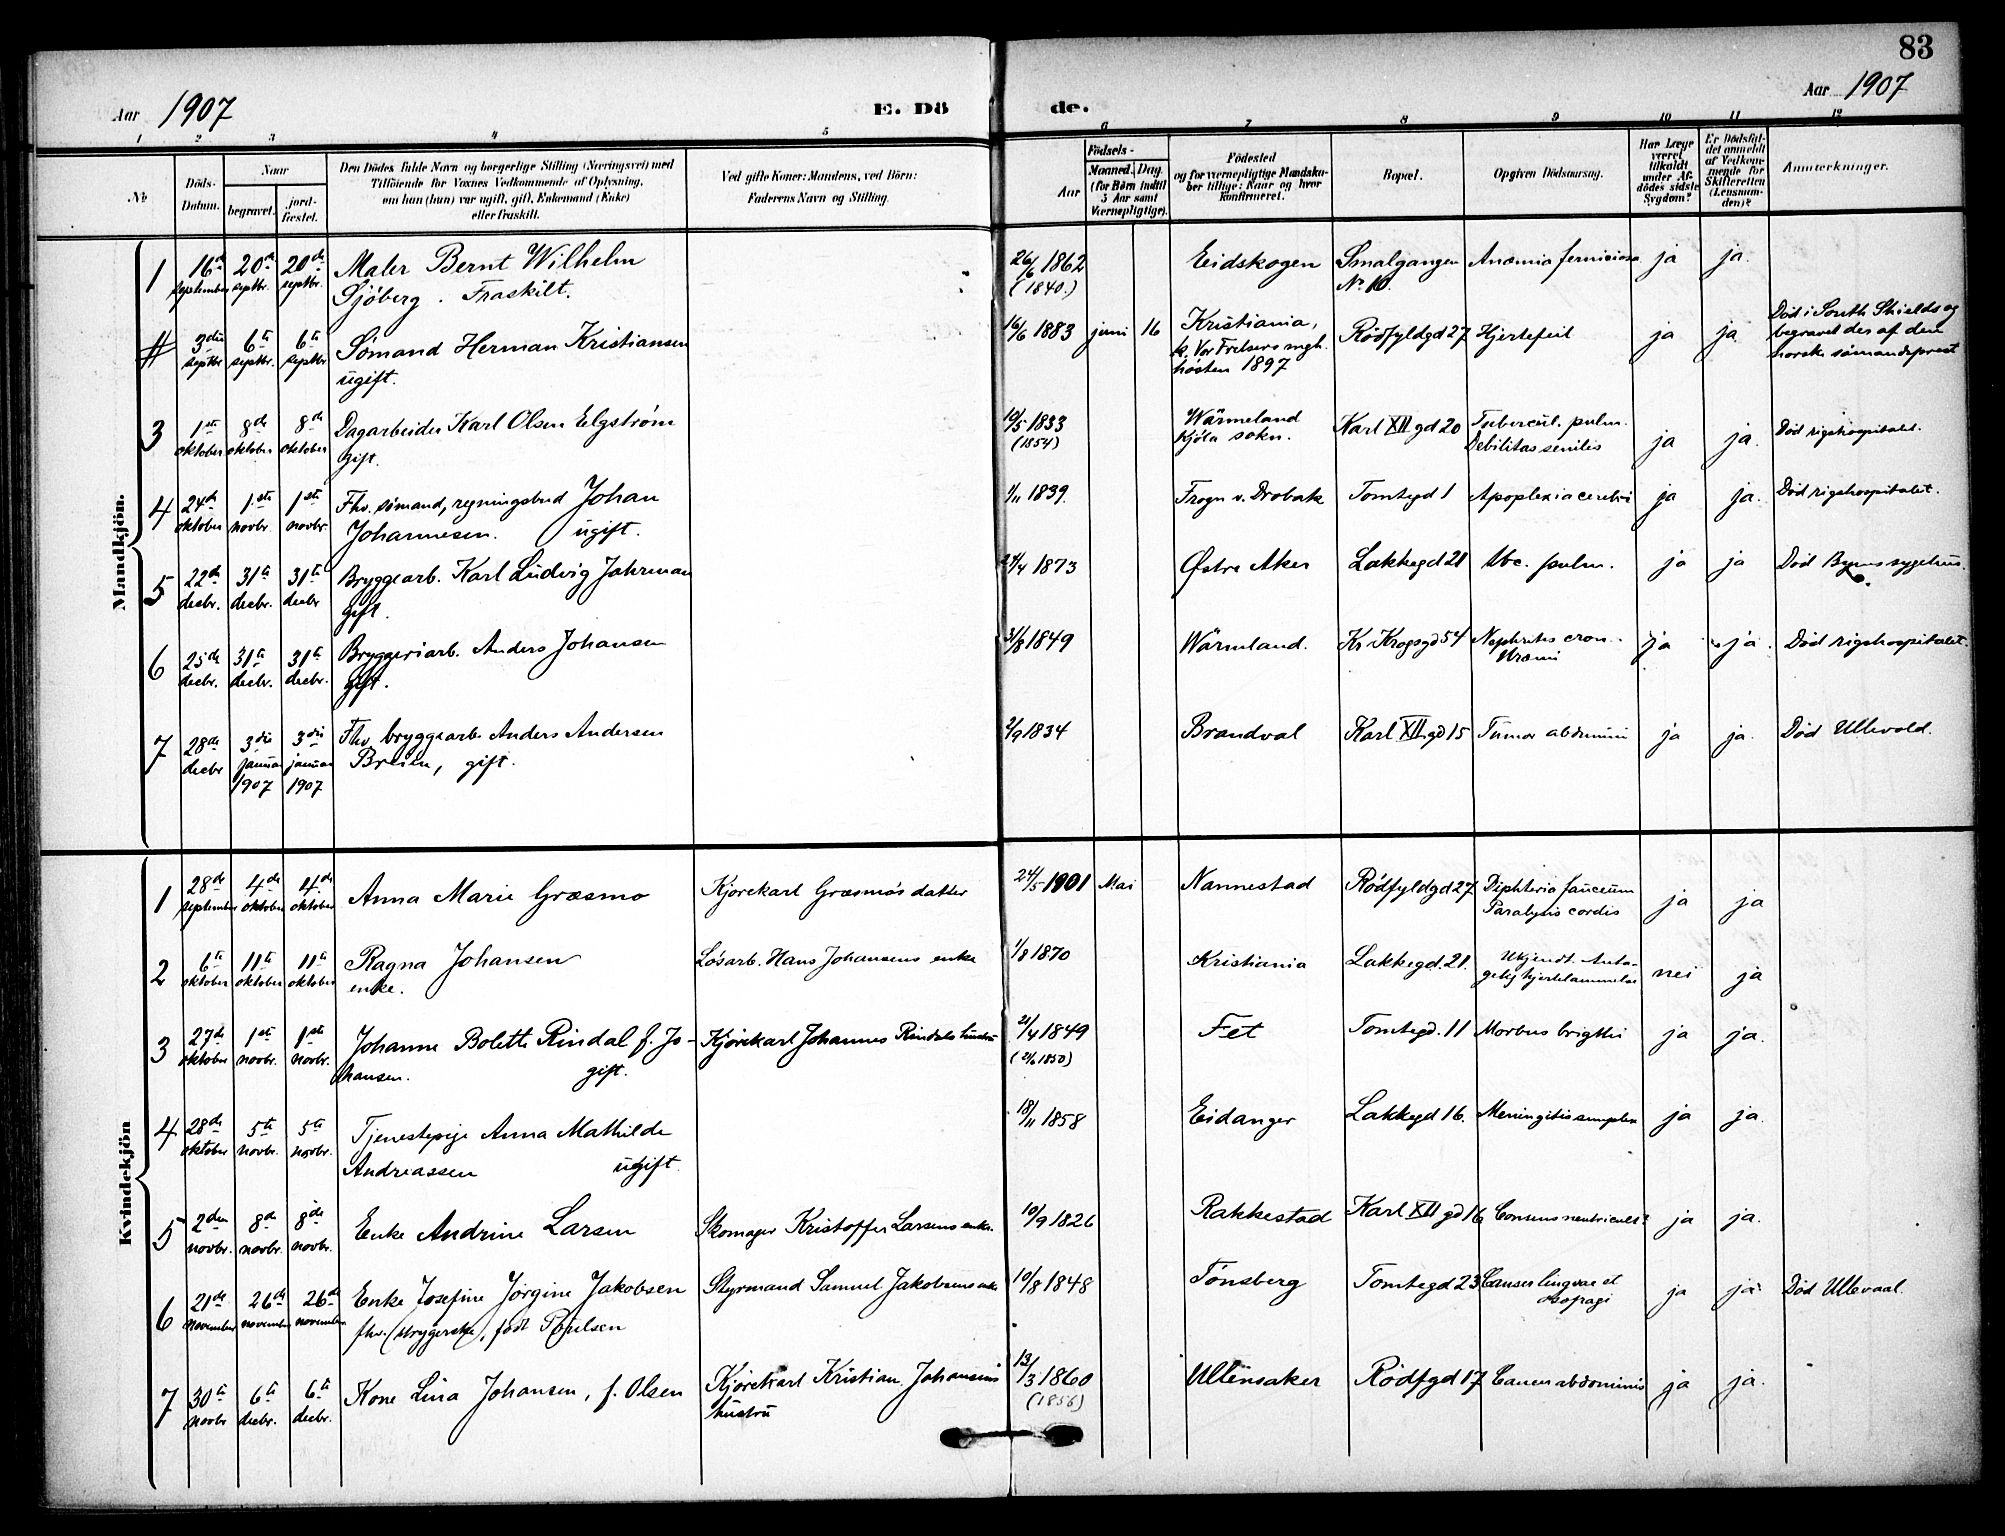 83
Aar 1907
E. Dö de.
Aar 1907
1 2 3 4 5 6 7 8 9 10 11 12
No
Döds-Datum.
Naar
begravet.
jord-fæstet.
Den Dödes fulde Navn og borgerlige Stilling (Næringsvei) med
Tilföiende for Voxnes Vedkommende af Oplysning,
om han (hun) var ugift, gift, Enkemand (Enke)
eller fraskilt.
Ved gifte Koner: Mandens, ved Börn:
Faderens Navn og Stilling.
Födsels-
Aar
Maaned. Dag.
(for Börn indtil
5 Aar samt
Værnepligtige).
Födested
og for værnepligtige Mandska-
ber tillige: Naar og hvor
konfirmeret.
Bopæl.
Opgiven Dödsaarsag.
Har Læge
været
tilkaldt
under Af-
dödes sidste
Sygdom?
Er Dödsfal-
det anmeldt
af Vedkom-
mende for
Skifteretten
(Lensman-
den)?
Anmærkninger.
Mandkjön.
1 16de september 20de septbr. 20de septbr. Maler Bernt Wilhelm 26/6 1862 Eidskogen Smalgangen Anæmia perniciosa ja ja.
Sjöberg. Fraskilt. (1840.) No 10.
# 3die septbr 6te septbr. 6te septbr Sømand Herman Kristiansen 16/6 1883 juni 16 Kristiania, Rødfyldgd 27 Hjertefeil ja ja Död i South Shields og
ugift. k. Vor Frelsers mgh. begravet der af den
høsten 1897 norske sömandsprest
3 1ste oktober 8de oktober 8de oktober Dagarbeider Karl Olsen Elgström 10/5 1833 Wärmeland Karl XII gd 20 Tubercul. pulm. ja ja. Död rigshospitalet.
gift. (1854) Kjöla sokn. Debilitas senilis
4 24de oktober 1ste novbr. 1ste novbr. Fhv. sömand, regningsbud Johan 1/11 1839. Frogn v. Drobak Tomtegd 1 Apoplexia cerebri ja ja. Död rigshospitalet.
Johannesen. ugift.
5 22de decbr. 31te decbr. 31te decbr Bryggearb. Karl Ludvig Jahrman 24/4 1873 Østre Aker Lakkegd 21 Tbc. pulm. ja ja Död Byens sygehus.
gift.
6 25de decbr. 31te decbr. 31te decbr. Bryggeriarb. Anders Johansen 31/8 1849 Wärmland. Kr Krogsgd 54 Nephritis cron. ja ja. Död rigshospitalet.
gift. Uræmi
7 28de decbr 3die januar 1907 3die januar 1907 Fhv. bryggearb. Anders Andersen 2/9 1834 Brandval Karl XII gd 15 Tumor abdomini ja ja. Död Ullevold.
Breien, gift.
Kvindekjön
1 28de september 4de oktober 4de oktober Anna Marie Græsmo Kjørekarl Græsmo's datter 24/5 1901 Mai Nannestad Rödfyldgd 27 Diphteria faucium ja ja
Paralysis cordis
2 6te oktober 11te oktober 11te oktober Ragna Johansen Løsarb. Hans Johansens enke 1/8 1870 Kristiania Lakkegd. 21. Ukjendt. Anta- nei ja
enke. gelig hjertelammelse
3 27de oktober 1ste novbr. 1ste novbr. Johanne Bolette Rindal f. Jo- Kjørekarl Johannes Rindals hustru 21/4 1849 Fet Tomtegd. 11 Morbus brigthi ja ja.
hansen. gift. (21/6 1850)
4 28de oktober 5te novbr. 5te novbr. Tjenestepige Anna Mathilde 18/11 1858 Eidanger Lakkegd 16. Meningitis simplex ja ja.
Andreassen ugift.
5 2den novbr. 8de novbr. 8de novbr. Enke Andrine Larsen Skomager Kristoffer Larsens enke. 10/9 1826 Rakkestad Karl XII gd 16 ja ja.
6 21de november 26de november 26de november Enke Josefine Jörgine Jakobsen Styrmand Samuel Jakobsens enke 10/8 1848 Tönsberg Tomtegd 23 Cancer lingvae et ja ja Död Ullevaal.
fhv. strygerske, födt Poulsen osopragi
7 30te novbr 6te decbr. 6te decbr. Kone Lina Johansen, f. Olsen Kjørekarl Kristian Johansens 13/3 1860 Ullensaker Rödfgd 17 Cancer abdominis ja ja.
hustru (1856)